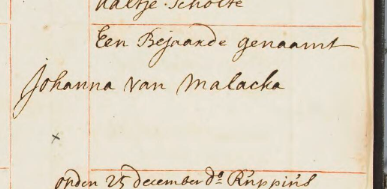 Aaltje Scholte
Een Bejaarde genaamt
Johanna van Malacka
x
onden 25 december ds Ruppius